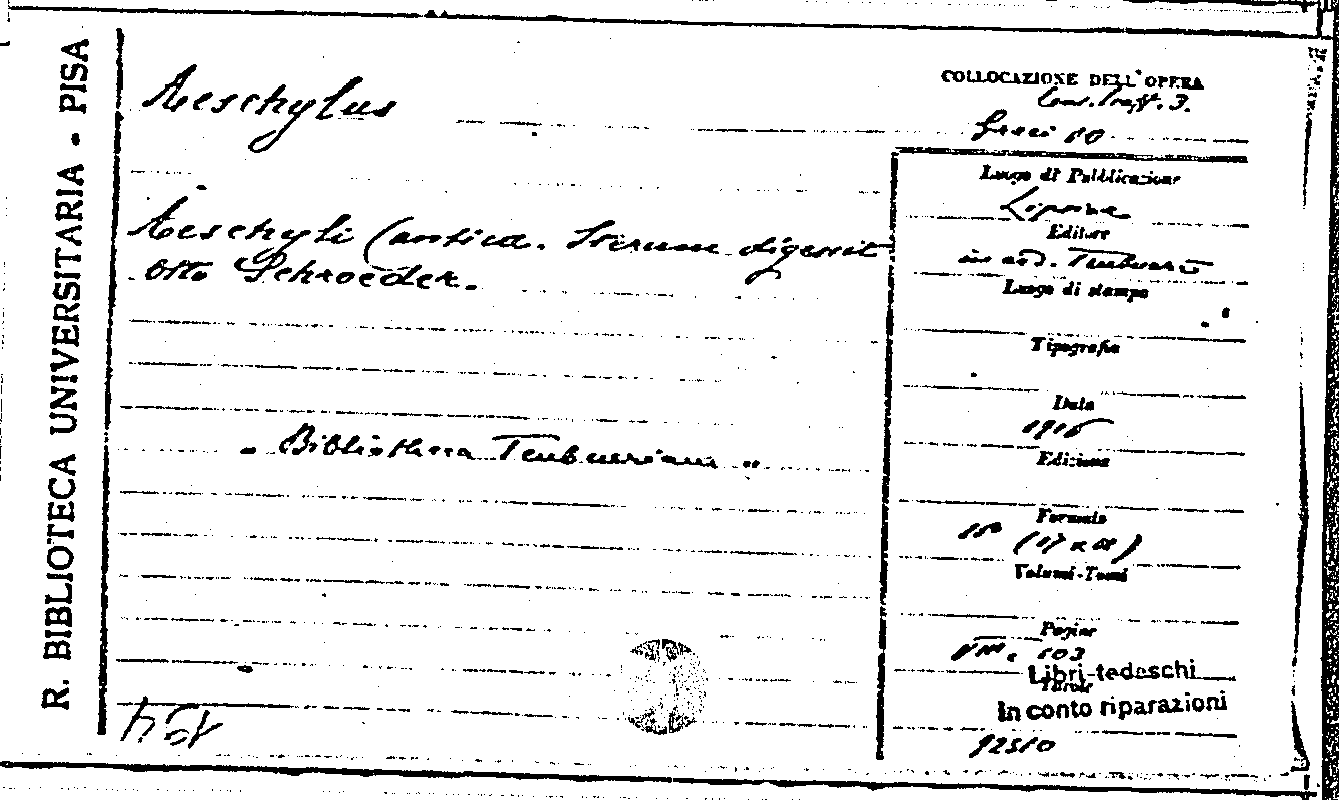 R. BIBLIOTECA UNIVERSITARIA - PISA
Aeschylus
COLLOCAZIONE DELL'OPERA
Greci 10
Aeschyli Cantica. Iterum digessit
Otto Schroeder.
„ Bibliotheca Teubneriana "
Luogo di Pubblicazione
Lipsiae
Editore
in aed. Teubneri
Luogo di stampa
Tipografia
Data
1916
Edizione
Formato
Volumi-Tomi
Pagine
VIII. 103
Libri-tedeschi
Tavole
In conto riparazioni
92510